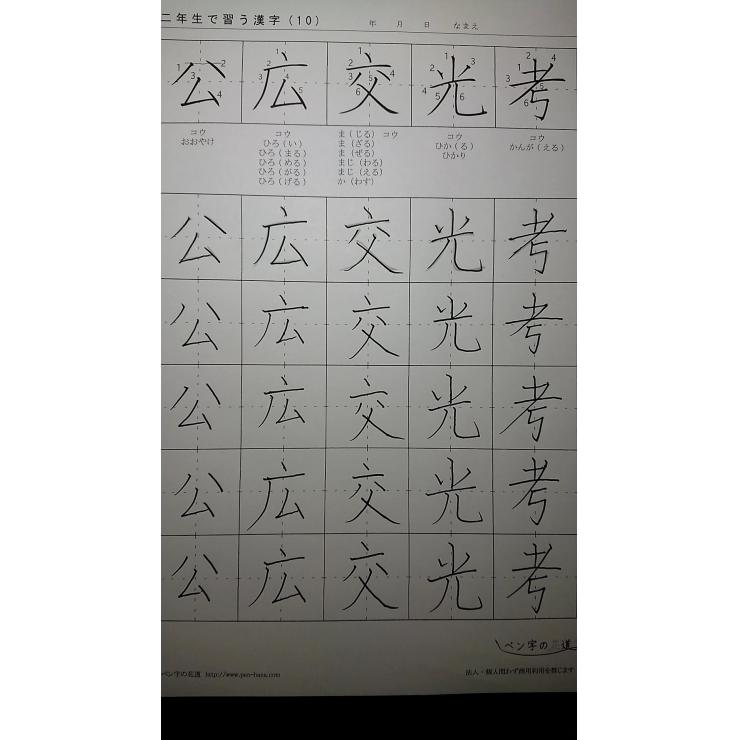 二年生で習う漢字（10） 年 月 日 なまえ
公 広 交 光 考
コウ
おおやけ
コウ
ひろ（い）
ひろ（まる）
ひろ（める）
ひろ（がる）
ひろ（げる）
ま（じる） コウ
ま（ざる）
ま（ぜる）
まじ（わる）
まじ（える）
か（わす）
コウ
ひか（る）
ひかり
コウ
かんが（える）
公 広 交 光 考
公 広 交 光 考
公 広 交 光 考
公 広 交 光 考
公 広 交 光 考
ペン字の花道
ペン字の花道 http://www.pen-hana.com
法人・個人問わず商用利用を禁じます